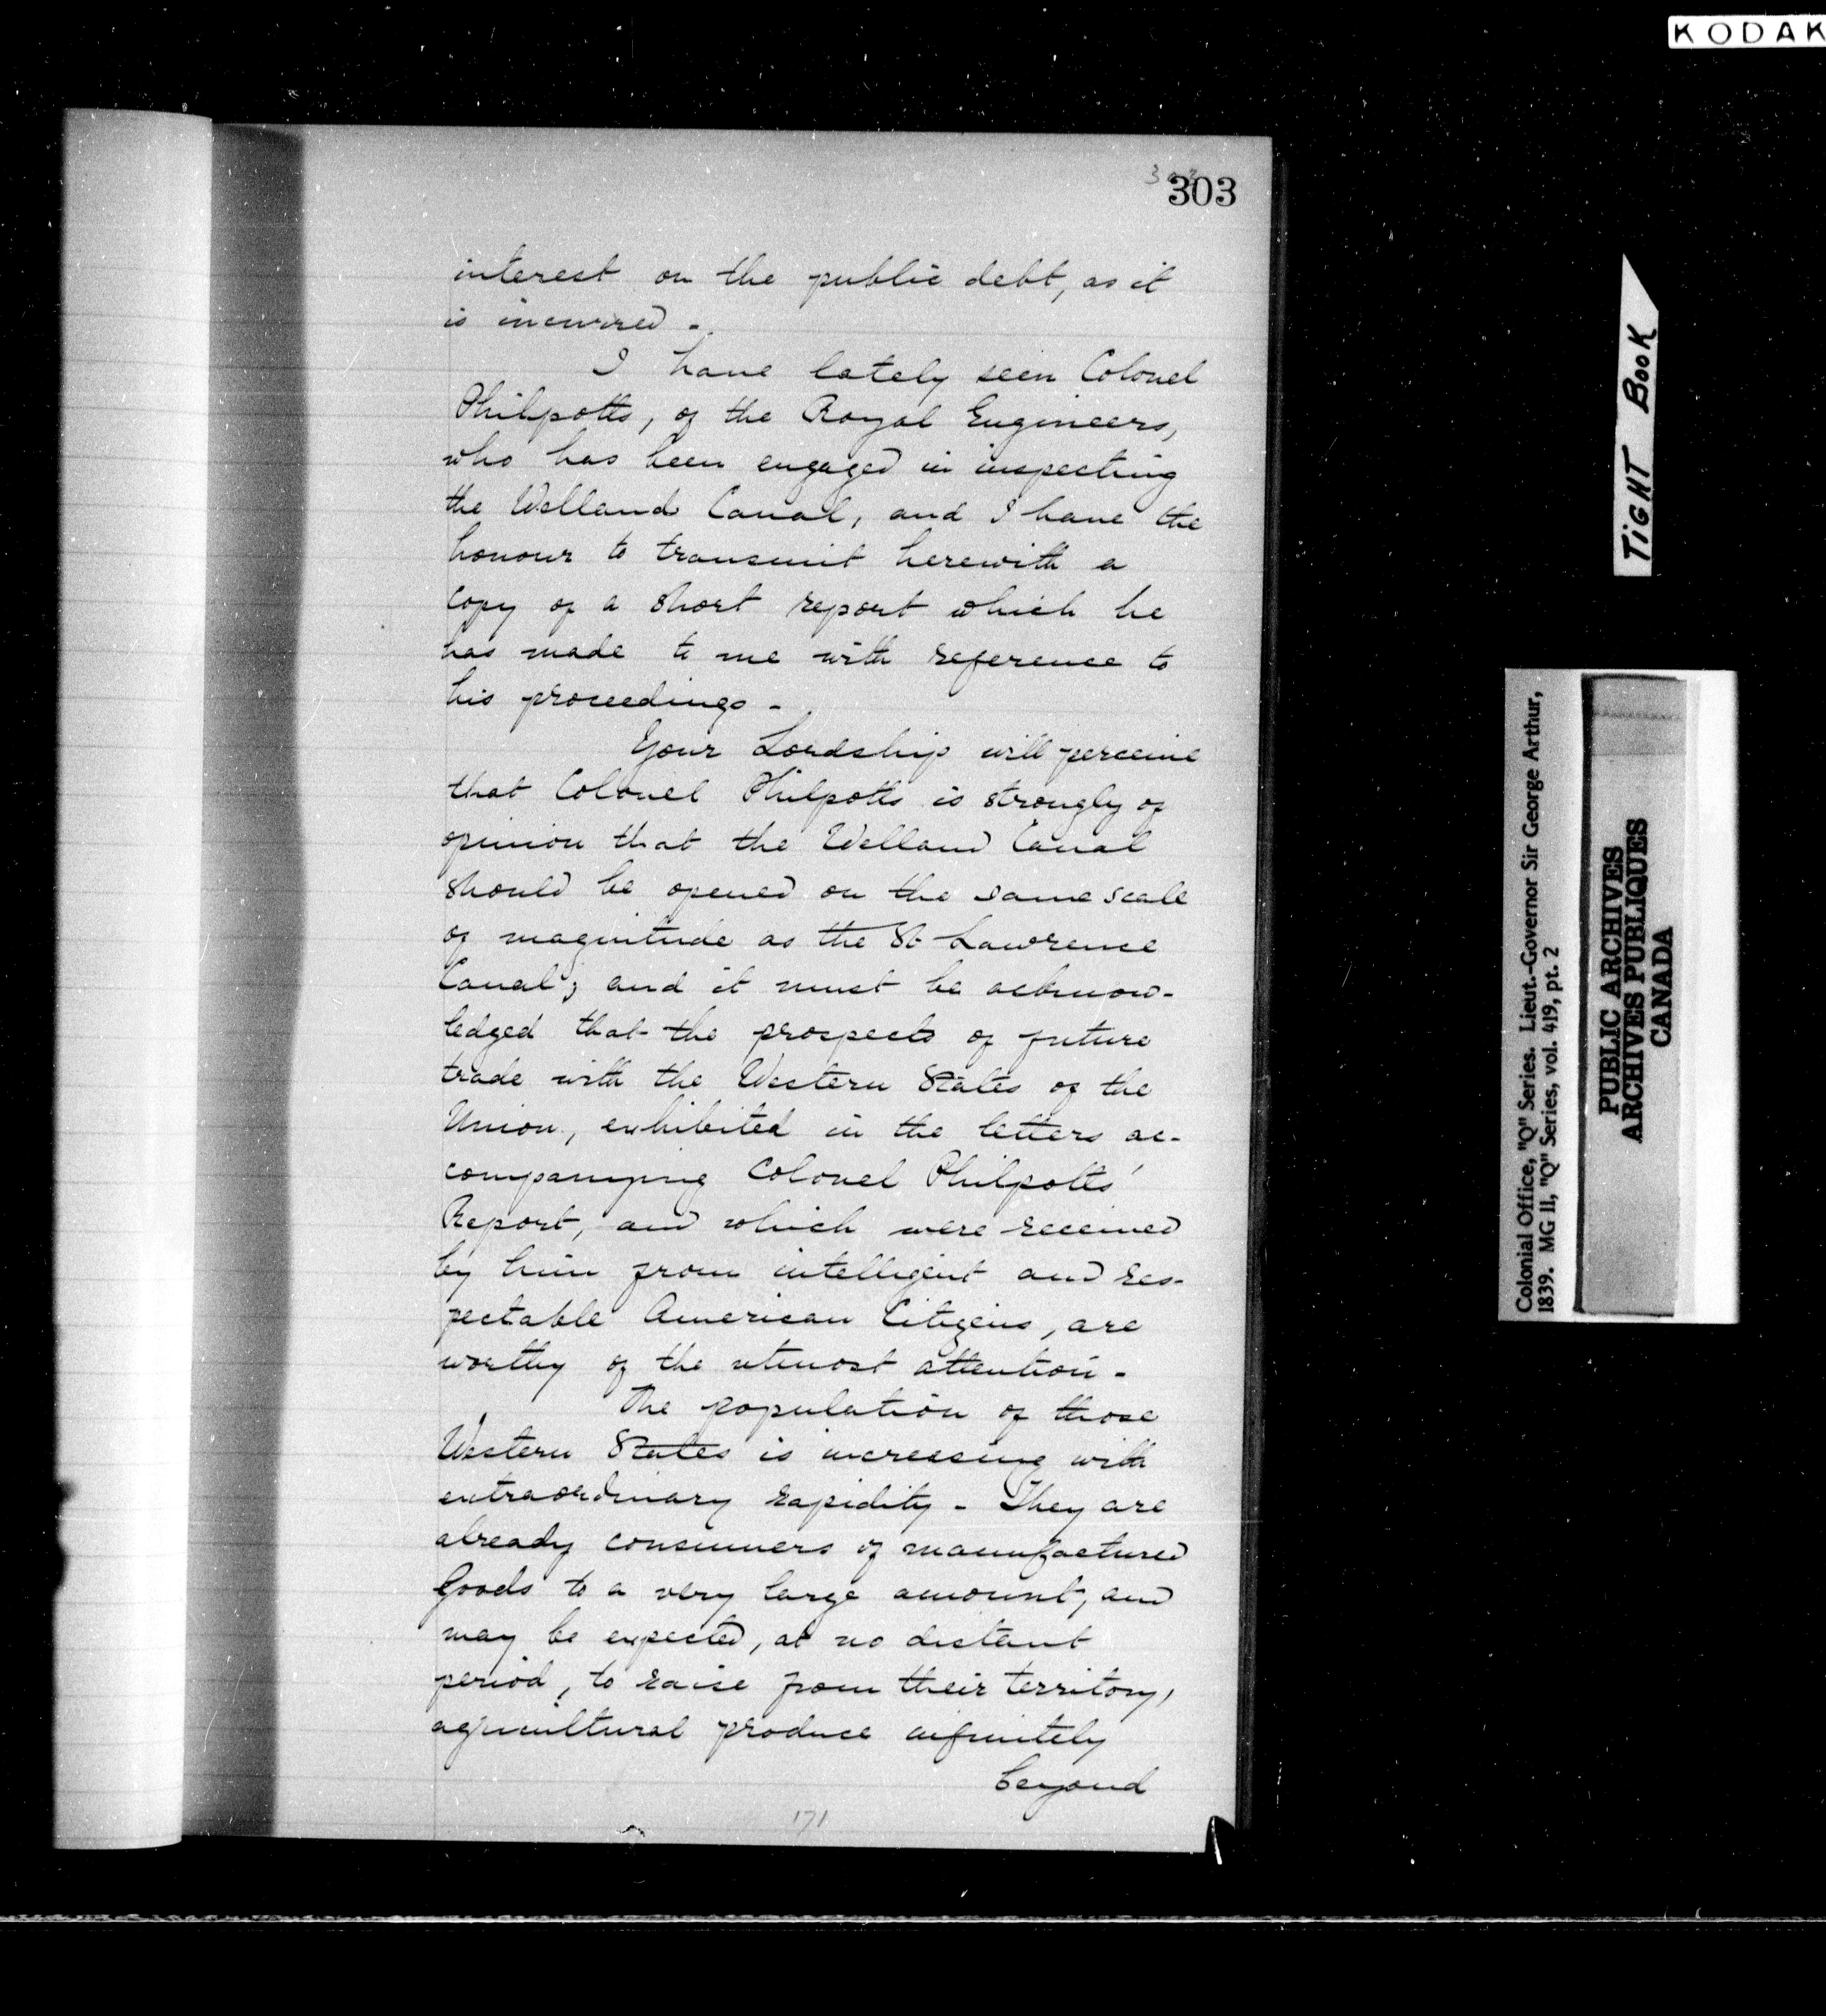 KODAK
303
interest on the public debt, as it
is incurred -
I have lately seen Colonel
Philpotts, of the Royal Engineers,
who has been engaged in inspecting
the Welland Canal, and I have the
honour to transmit herewith a
copy of a short report which he
has made to me with reference to
his proceedings -
Your Lordship will perceive
that Colonel Philpotts is strongly of
opinion that the Welland Canal
should be opened on the same scale
of magnitude as the St Lawrence
Canal; and it must be acknow-
ledged that the prospects of future
trade with the Western States of the
Union, exhibited in the letters ac-
companying Colonel Philpotts'
Report, and which were received
by him from intelligent and res-
pectable American Citizens, are
worthy of the utmost attention -
The population of those
Western States is increasing with
extraordinary rapidity - They are
already consumers of manufactured
Goods to a very large amount, and
may be expected, at no distant
period, to raise from their territory,
agricultural produce infinitely
beyond
171
TIGHT BOOK
Colonial Office, "Q" Series. Lieut.-Governor Sir George Arthur,
1839. MG 11, "Q" Series, vol. 419, pt. 2
PUBLIC ARCHIVES
ARCHIVES PUBLIQUES
CANADA